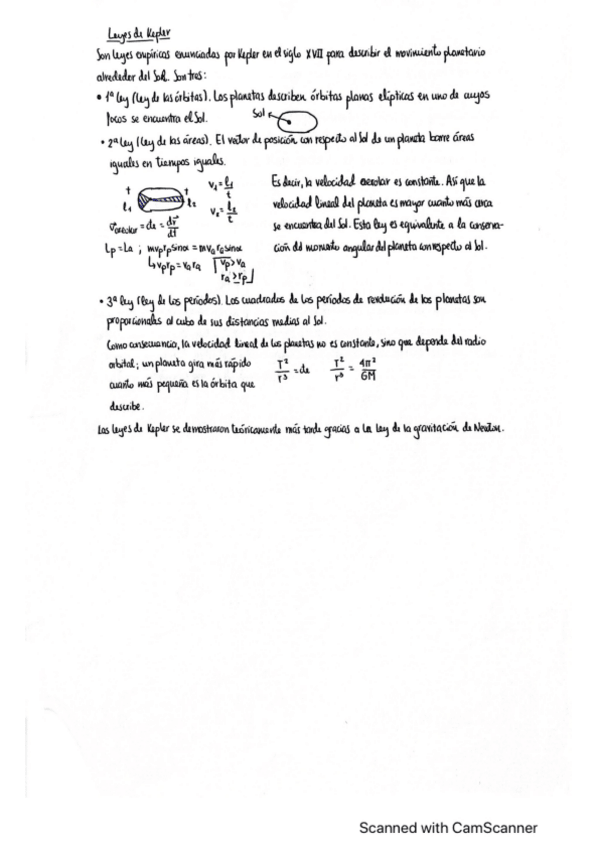 Leyes de Kepler
Son leyes empíricas enunciadas por Kepler en el siglo XVII para describir el movimiento planetario
alrededor del Sol. Son tres:
• 1ª ley (ley de las órbitas). Los planetas describen órbitas planas elípticas en uno de cuyos
focos se encuentra el Sol.
Sol
• 2ª ley (ley de las áreas). El vector de posición con respecto al Sol de un planeta barre áreas
iguales en tiempos iguales.
t t
l₁ l₂
v₁ = l₁/t
v₂ = l₂/t
v areolar = cte = dr⃗/dt
Lp = La ; mvp rp sinα = mva ra sinα
↳ vp rp = va ra
vp > va
ra > rp
Es decir, la velocidad areolar es constante. Así que la
velocidad lineal del planeta es mayor cuanto más cerca
se encuentra del Sol. Esta ley es equivalente a la conserva-
ción del momento angular del planeta con respecto al Sol.
• 3ª ley (ley de los períodos). Los cuadrados de los períodos de revolución de los planetas son
proporcionales al cubo de sus distancias medias al Sol.
Como consecuencia, la velocidad lineal de los planetas no es constante, sino que depende del radio
orbital; un planeta gira más rápido
cuanto más pequeña es la órbita que
describe.
T²/r³ = cte
T²/r³ = 4π²/GM
Las leyes de Kepler se demostraron teóricamente más tarde gracias a la ley de la gravitación de Newton.
Scanned with CamScanner